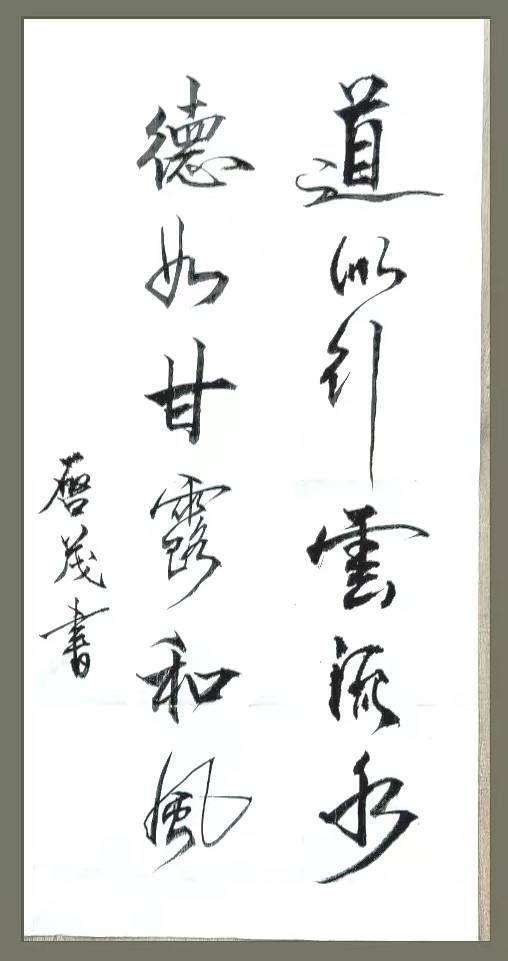 道似行雲流水
德如甘露和風
啓茂書